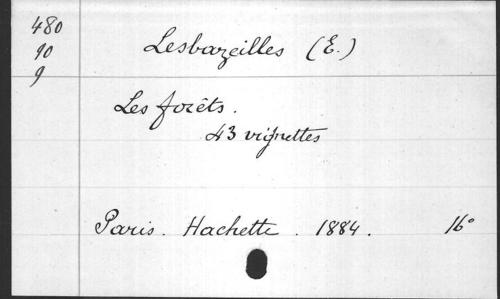 480
90
9
Lesbazeilles (E.)
Les forêts.
43 vignettes
Paris. Hachette. 1884. 16°